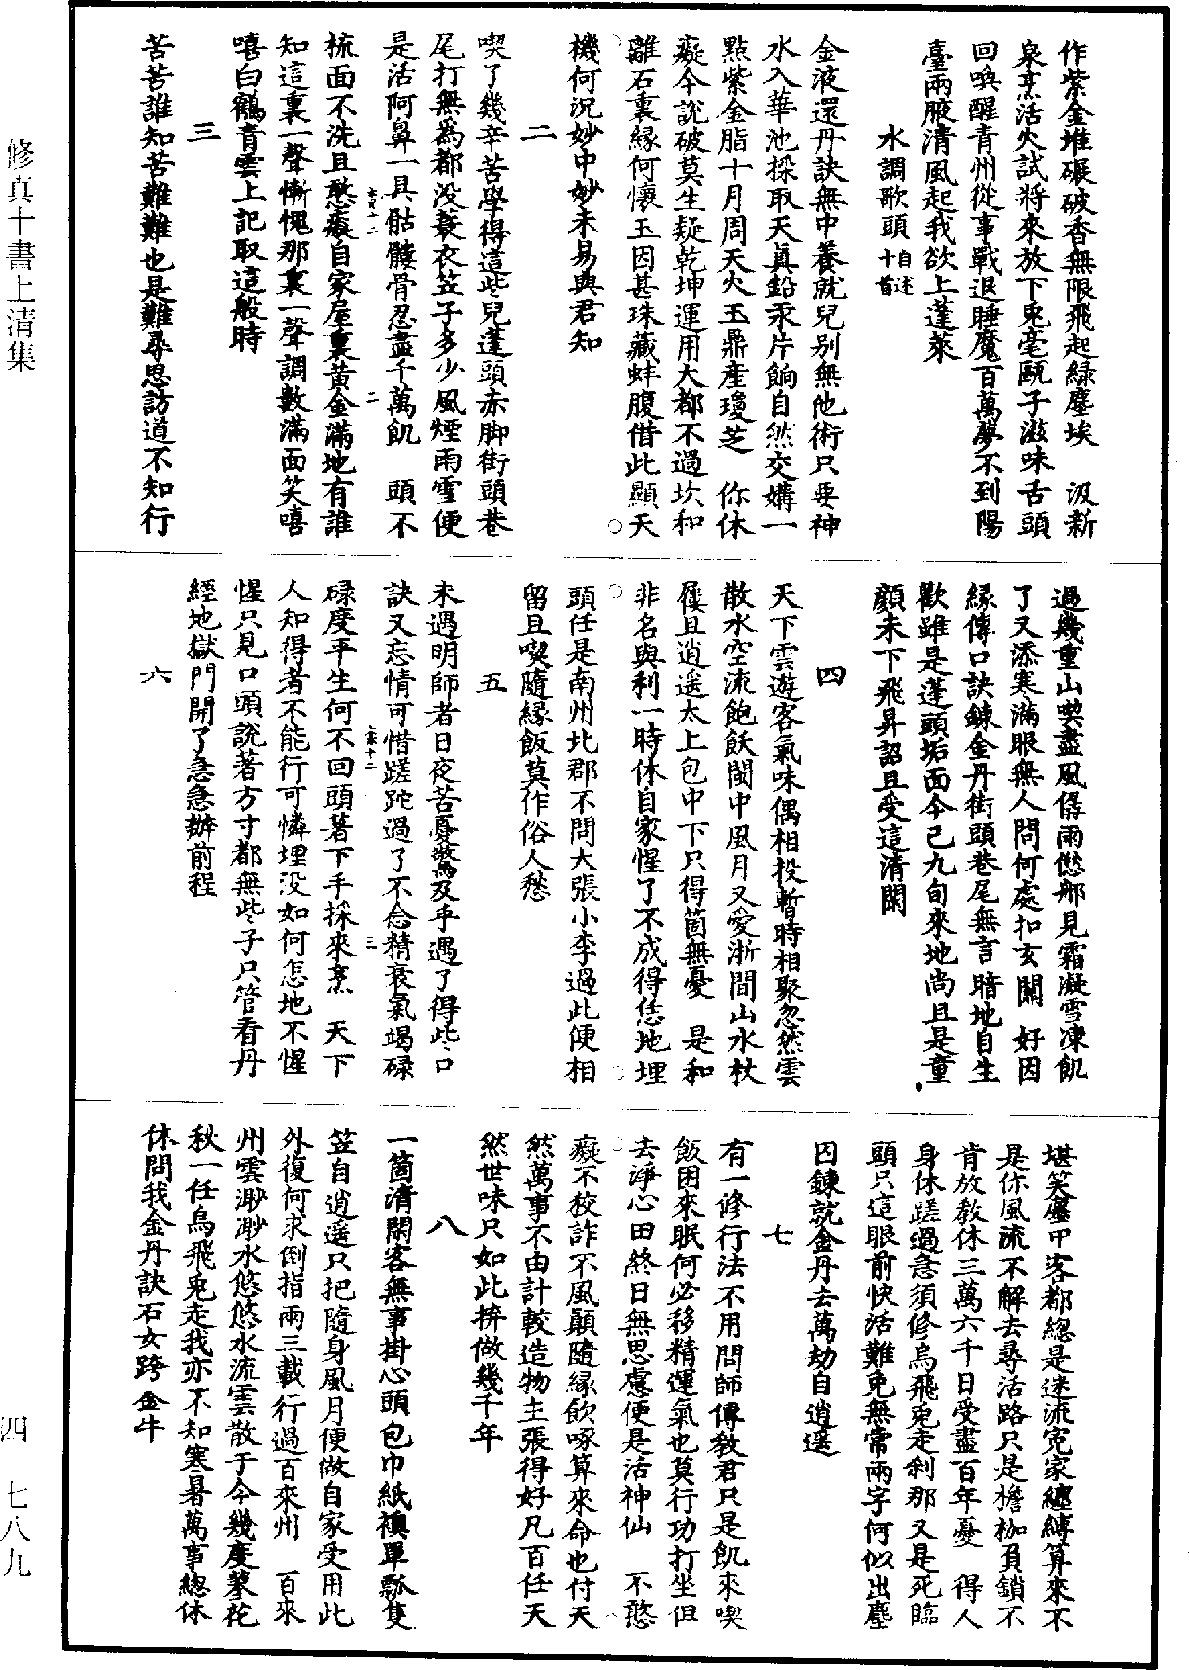 作紫金堆碾破香無限飛起綠塵埃　汲新
泉烹活火試將來放下兎毫甌子滋味舌頭
回喚醒青州從事戰退睡魔百萬夢不到陽
臺兩腋清風起我欲上蓬萊
水調歌頭自述十首
金液還丹訣無中養就兒别無他術只要神
水入華池採取天真鉛汞片餉自然交媾一
點紫金脂十月周天火玉鼎產瓊芝　你休
癡今說破莫生疑乾坤運用大都不過坎和
離石裏緣何懷玉因甚珠藏蚌腹借此顯天
機何況妙中妙未易與君知
二
喫了幾辛苦學得這些兒蓬頭赤脚街頭巷
尾打無爲都没蓑衣笠子多少風煙雨雪便
是活阿鼻一具骷髏骨忍盡千萬飢　頭不
梳面不洗且憨癡自家屋裏黃金滿地有誰
知這裏一聲慚愧那裏一聲調數滿面笑嘻
嘻白鶴青雲上記取這般時
三
苦苦誰知苦難難也是難尋思訪道不知行
過幾重山喫盡風僝雨僽那見霜凝雪凍飢
了又添寒滿眼無人問何處扣玄關　好因
緣傳口訣鍊金丹街頭巷尾無言暗地自生
歡雖是蓬頭垢面今已九旬來地尚且是童
顏未下飛昇詔且受這清閑
四
天下雲遊客氣味偶相投暫時相聚忽然雲
散水空流飽飫閩中風月又愛浙間山水杖
屨且逍遥太上包中下只得箇無憂　是和
非名與利一時休自家惺了不成得恁地埋
頭任是南州北郡不問大張小李過此便相
留且喫隨緣飯莫作俗人愁
五
未遇明師者日夜苦憂驚及乎遇了得些口
訣又忘情可惜蹉跎過了不念精衰氣竭碌
碌度平生何不回頭著下手採來烹　天下
人知得者不能行可憐埋没如何怎地不惺
惺只見口頭說著方寸都無些子只管看丹
經地獄門開了急急辦前程
六
堪笑塵中客都總是迷流冤家纏縛算來不
是你風流不解去尋活路只是擔枷負鎖不
肯放教休三萬六千日受盡百年憂　得人
身休蹉過急須修烏飛兎走刹那又是死臨
頭只這眼前快活難免無常兩字何似出塵
因鍊就金丹去萬劫自逍遥
七
有一修行法不用問師傳教君只是飢來喫
飯困來眠何必移精運氣也莫行功打坐但
去淨心田終日無思慮便是活神仙　不憨
癡不狡詐不風顛隨緣飲啄算來命也付天
然萬事不由計較造物主張得好凡百任天
然世味只如此拚做幾千年
八
一箇清閑客無事掛心頭包巾紙襖單瓢隻
笠自逍遥只把隨身風月便做自家受用此
外復何求倒指兩三載行過百來州　百來
州雲渺渺水悠悠水流雲散于今幾度蓼花
秋一任烏飛兎走我亦不知寒暑萬事總休
休問我金丹訣石女跨金牛
修真十書上清集
四　七八九